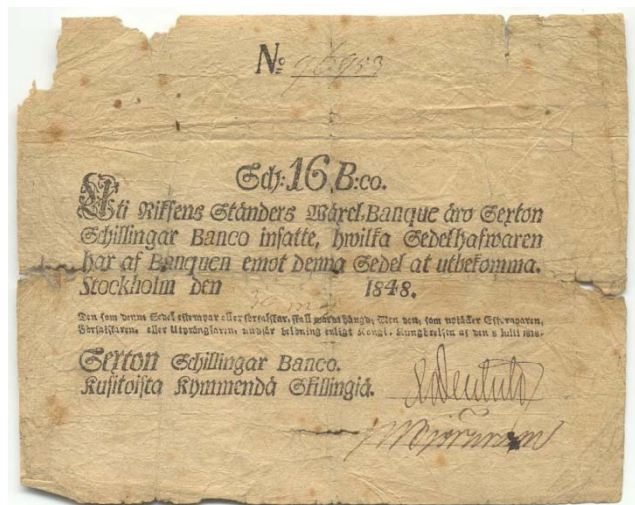 No
Sch: 16 B:co.
Uti Riksens Ständers Wäxel-Banque äro Sexton
Schillingar Banco insatte, hwilka Sedelhafwaren
har af Banquen emot denna Sedel at utbekomma.
Stockholm den 1848.
Den som denna Sedel efterapar eller förfalskar, skall warda hängd; Men den, som uptäcker Efteraparen,
Förfalskaren, eller Utprånglaren, undfår belöning enligt Kongl. Kungörelsen af den 8 Julii 1818.
Sexton Schillingar Banco.
Kusitoista Kymmendä Skillingiä.